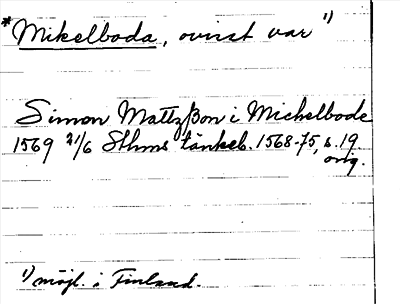 *Mikelboda, ovisst var 1)
Simon Mattzßon i Michelbode
1569 21/6 Sthms tänkeb. 1568-75, s. 19
orig.
1) möjl. i Finland.